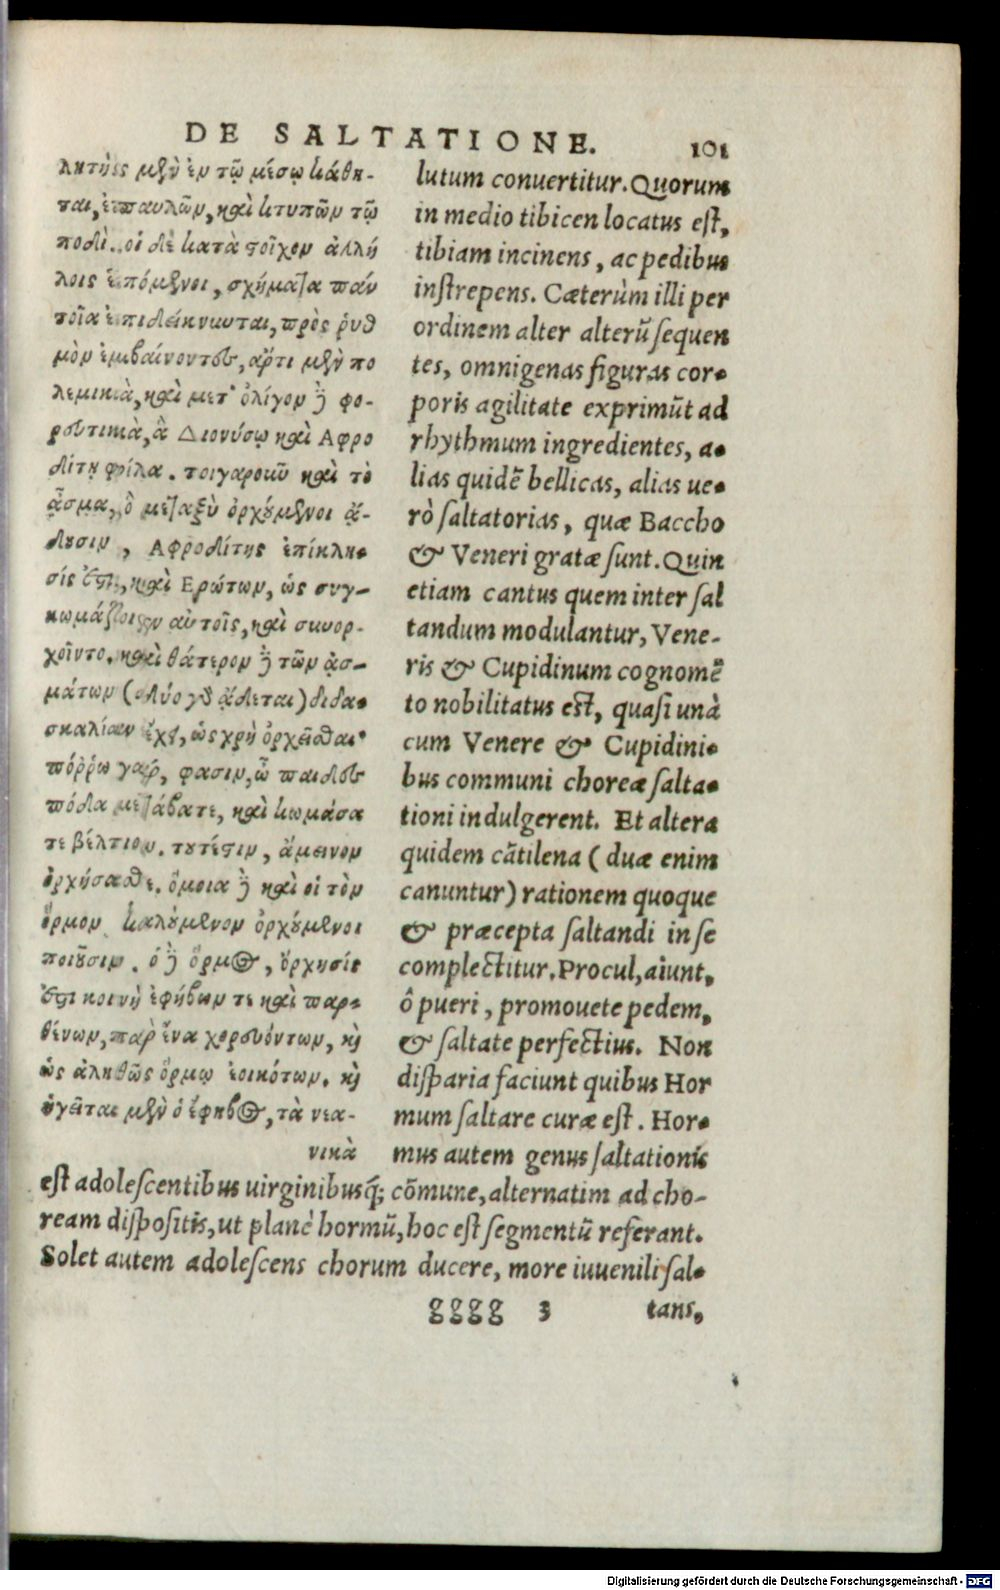 DE SALTATIONE. 101
λητὴς μὲν ἐν τῷ μέσῳ κάθη-
ται, ἐπαυλῶν, καὶ κτυπῶν τῷ
ποδὶ. οἱ δὲ κατὰ στοῖχον ἀλλή
λοις ἑπόμενοι, σχήματα παν
τοῖα ἐπιδείκνυνται, πρὸς ῥυθ
μὸν ἐμβαίνοντες, ἄρτι μὲν πο
λεμικὰ, καὶ μετ' ὀλίγον δὲ φο-
ρευτικὰ, ἃ Διονύσῳ καὶ Αφρο
δίτῃ φίλα. τοιγαροῦν καὶ τὸ
ᾆσμα, ὃ μεταξὺ ὀρχούμενοι ᾄ-
δουσιν, Αφροδίτης ἐπίκλη-
σίς ἐστι, καὶ Ερώτων, ὡς συγ-
κωμάζοιεν αὐτοῖς, καὶ συνορ-
χοῖντο. καὶ θάτερον δὲ τῶν ᾀσ-
μάτων (δύο γὰρ ᾄδεται) διδα-
σκαλίαν ἔχει, ὡς χρὴ ὀρχεῖσθαι·
πόρρω γαρ, φασιν, ὦ παιδες
πόδα μετάβατε, καὶ κωμάσα
τε βέλτιον. τουτέστιν, ἄμεινον
ὀρχήσασθε. ὅμοια δὲ καὶ οἱ τὸν
ὅρμον καλούμενον ὀρχούμενοι
ποιοῦσιν. ὁ δὲ ὅρμος, ὄρχησίς
ἐστι κοινὴ ἐφήβων τε καὶ παρ-
θένων, παρ' ἕνα χορευόντων, καὶ
ὡς ἀληθῶς ὅρμῳ ἐοικότων. καὶ
ἡγεῖται μὲν ὁ ἔφηβος, τὰ νεα-
νικὰ
lutum conuertitur. Quorum
in medio tibicen locatus est,
tibiam incinens, ac pedibus
instrepens. Cæterùm illi per
ordinem alter alterū sequen
tes, omnigenas figuras cor-
poris agilitate exprimūt ad
rhythmum ingredientes, a-
lias quidē bellicas, alias ue-
rò saltatorias, quæ Baccho
& Veneri gratæ sunt. Quin
etiam cantus quem inter sal
tandum modulantur, Vene-
ris & Cupidinum cognomē
to nobilitatus est, quasi unà
cum Venere & Cupidini-
bus communi choreæ salta-
tioni indulgerent. Et altera
quidem cātilena (duæ enim
canuntur) rationem quoque
& præcepta saltandi in se
complectitur. Procul, aiunt,
ô pueri, promouete pedem,
& saltate perfectius. Non
disparia faciunt quibus Hor
mum saltare curæ est. Hor-
mus autem genus saltationis
est adolescentibus uirginibusq́; cōmune, alternatim ad cho-
ream dispositis, ut planè hormū, hoc est segmentū referant.
Solet autem adolescens chorum ducere, more iuuenili sal-
gggg 3 tans,
Digitalisierung gefördert durch die Deutsche Forschungsgemeinschaft - DFG